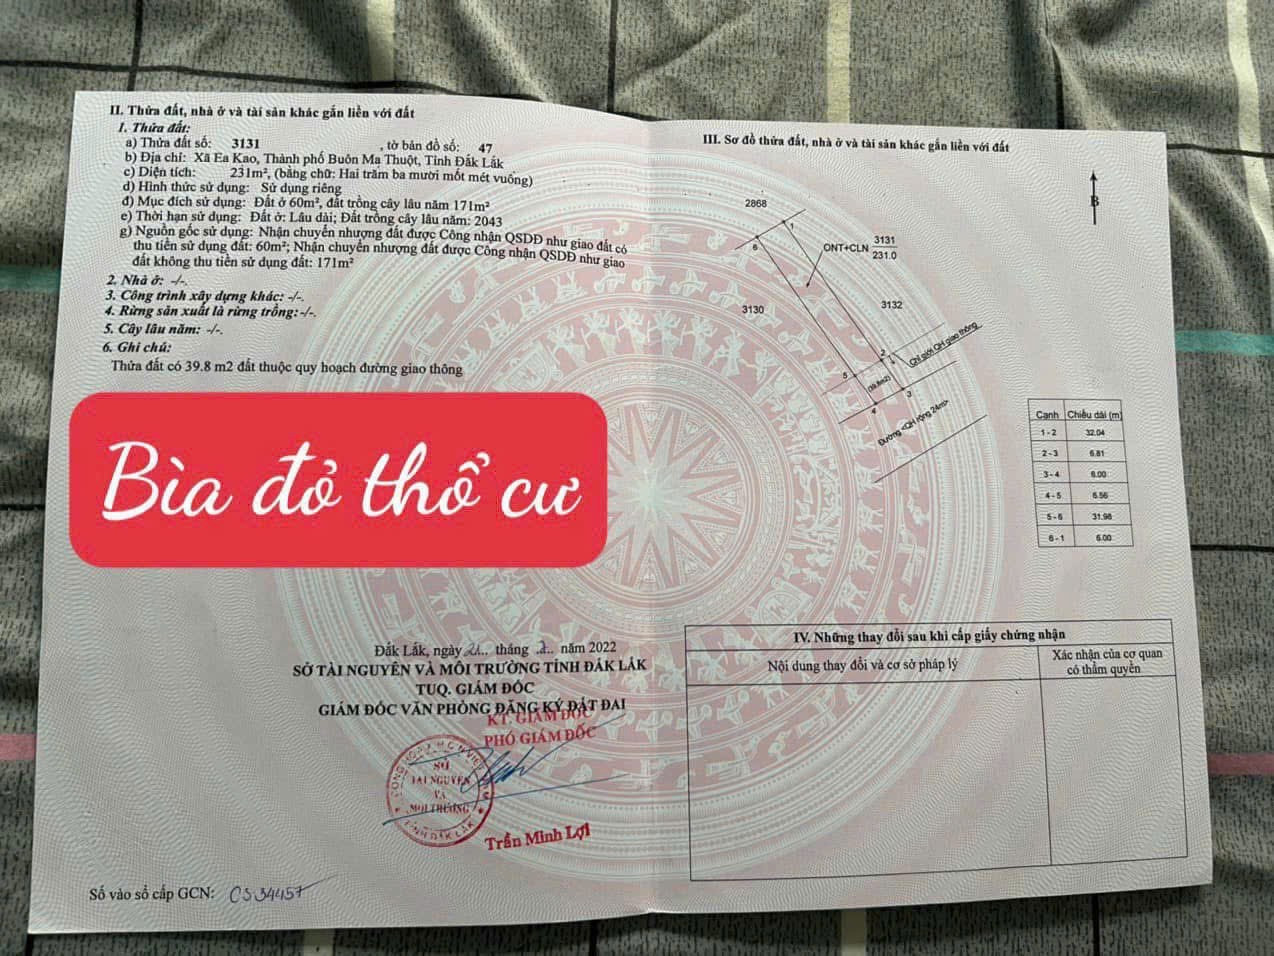 II. Thửa đất, nhà ở và tài sản khác gắn liền với đất
1. Thửa đất:
a) Thửa đất số: 3131 , tờ bản đồ số: 47
b) Địa chỉ: Xã Ea Kao, Thành phố Buôn Ma Thuột, Tỉnh Đắk Lắk
c) Diện tích: 231m², (bằng chữ: Hai trăm ba mươi mốt mét vuông)
d) Hình thức sử dụng: Sử dụng riêng
đ) Mục đích sử dụng: Đất ở 60m², đất trồng cây lâu năm 171m²
e) Thời hạn sử dụng: Đất ở: Lâu dài; Đất trồng cây lâu năm: 2043
g) Nguồn gốc sử dụng: Nhận chuyển nhượng đất được Công nhận QSDĐ như giao đất có
thu tiền sử dụng đất: 60m²; Nhận chuyển nhượng đất được Công nhận QSDĐ như giao
đất không thu tiền sử dụng đất: 171m²
2. Nhà ở: -/-.
3. Công trình xây dựng khác: -/-.
4. Rừng sản xuất là rừng trồng: -/-.
5. Cây lâu năm: -/-.
6. Ghi chú:
Thửa đất có 39.8 m2 đất thuộc quy hoạch đường giao thông
Bìa đỏ thổ cư
Đắk Lắk, ngày 21.. tháng .2.. năm 2022
SỞ TÀI NGUYÊN VÀ MÔI TRƯỜNG TỈNH ĐẮK LẮK
TUQ. GIÁM ĐỐC
GIÁM ĐỐC VĂN PHÒNG ĐĂNG KÝ ĐẤT ĐAI
KT. GIÁM ĐỐC
PHÓ GIÁM ĐỐC
SỞ
TÀI NGUYÊN
VÀ
MÔI TRƯỜNG
TỈNH ĐẮK LẮK
Trần Minh Lợi
Số vào sổ cấp GCN: CS34457
III. Sơ đồ thửa đất, nhà ở và tài sản khác gắn liền với đất
B
2868
1
6
ONT+CLN 3131
231.0
3130
3132
Chỉ giới QH giao thông
2
5
(39.8m2)
3
4
Đường <QH rộng 24m>
Cạnh Chiều dài (m)
1 - 2 32.04
2 - 3 6.81
3 - 4 6.00
4 - 5 6.56
5 - 6 31.98
6 - 1 6.00
IV. Những thay đổi sau khi cấp giấy chứng nhận
Nội dung thay đổi và cơ sở pháp lý
Xác nhận của cơ quan
có thẩm quyền